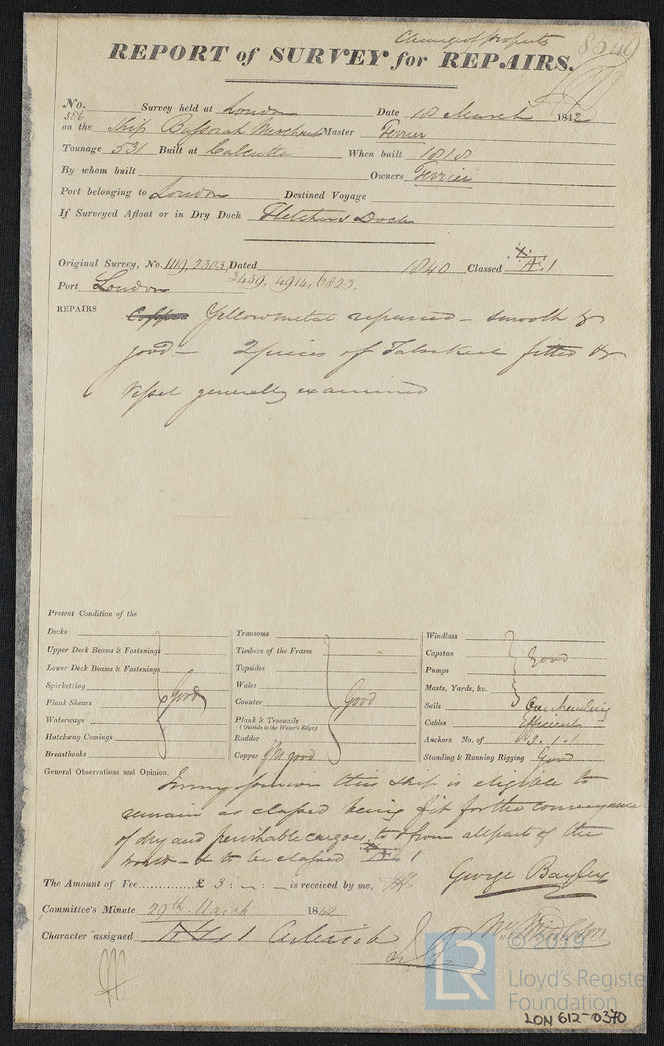 Change of Property
8549
REPORT of SURVEY for REPAIRS.
No. 586 Survey held at London Date 18 March 1842
on the Ship Bussorah Merchant Master Ferrier
Tonnage 531 Built at Calcutta When built 1818
By whom built Owners Ferrier
Port belonging to London Destined Voyage
If Surveyed Afloat or in Dry Dock Fletchers Dock
Original Survey, No. 1119, 2303, Dated 1840 Classed Æ 1
Port London 3439, 4914, 6823.
REPAIRS Copper Yellow metal repaired – smooth &
good – 2 pieces of False keel fitted &
Vessel generally examined
Present Condition of the
Decks
Upper Deck Beams & Fastenings
Lower Deck Beams & Fastenings
Spirketting
Plank Shears
Waterways
Hatchway Comings
Breasthooks
Good
Transoms
Timbers of the Frame
Topsides
Wales
Counter
Plank & Treenails
(Outside to the Water's Edge)
Rudder
Copper YM good
Good
Windlass
Capstan
Pumps
Masts, Yards, &c.
Good
Sails Overhauling
Cables efficient
Anchors No. of 3.1.1
Standing & Running Rigging Good
General Observations and Opinion, In my opinion this ship is eligible to
remain as classed being fit for the conveyance
of dry and perishable cargoes, to & from all parts of the
world – & to be classed Æ 1
George Bayley
The Amount of Fee............£ 3 : – : – is received by me,
Committee's Minute 29th March 1842
Character assigned Æ 1
© 2019
LR
Lloyd's Register
Foundation
LON 612-0370